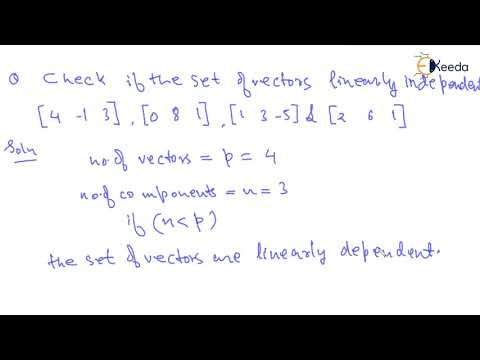 Keeda
Q Check if the set of vectors linearly independent
[4 -1 3], [0 8 1], [1 3 -5] & [2 6 1]
Soln
no. of vectors = p = 4
no. of components = n = 3
if (n < p)
the set of vectors are linearly dependent.